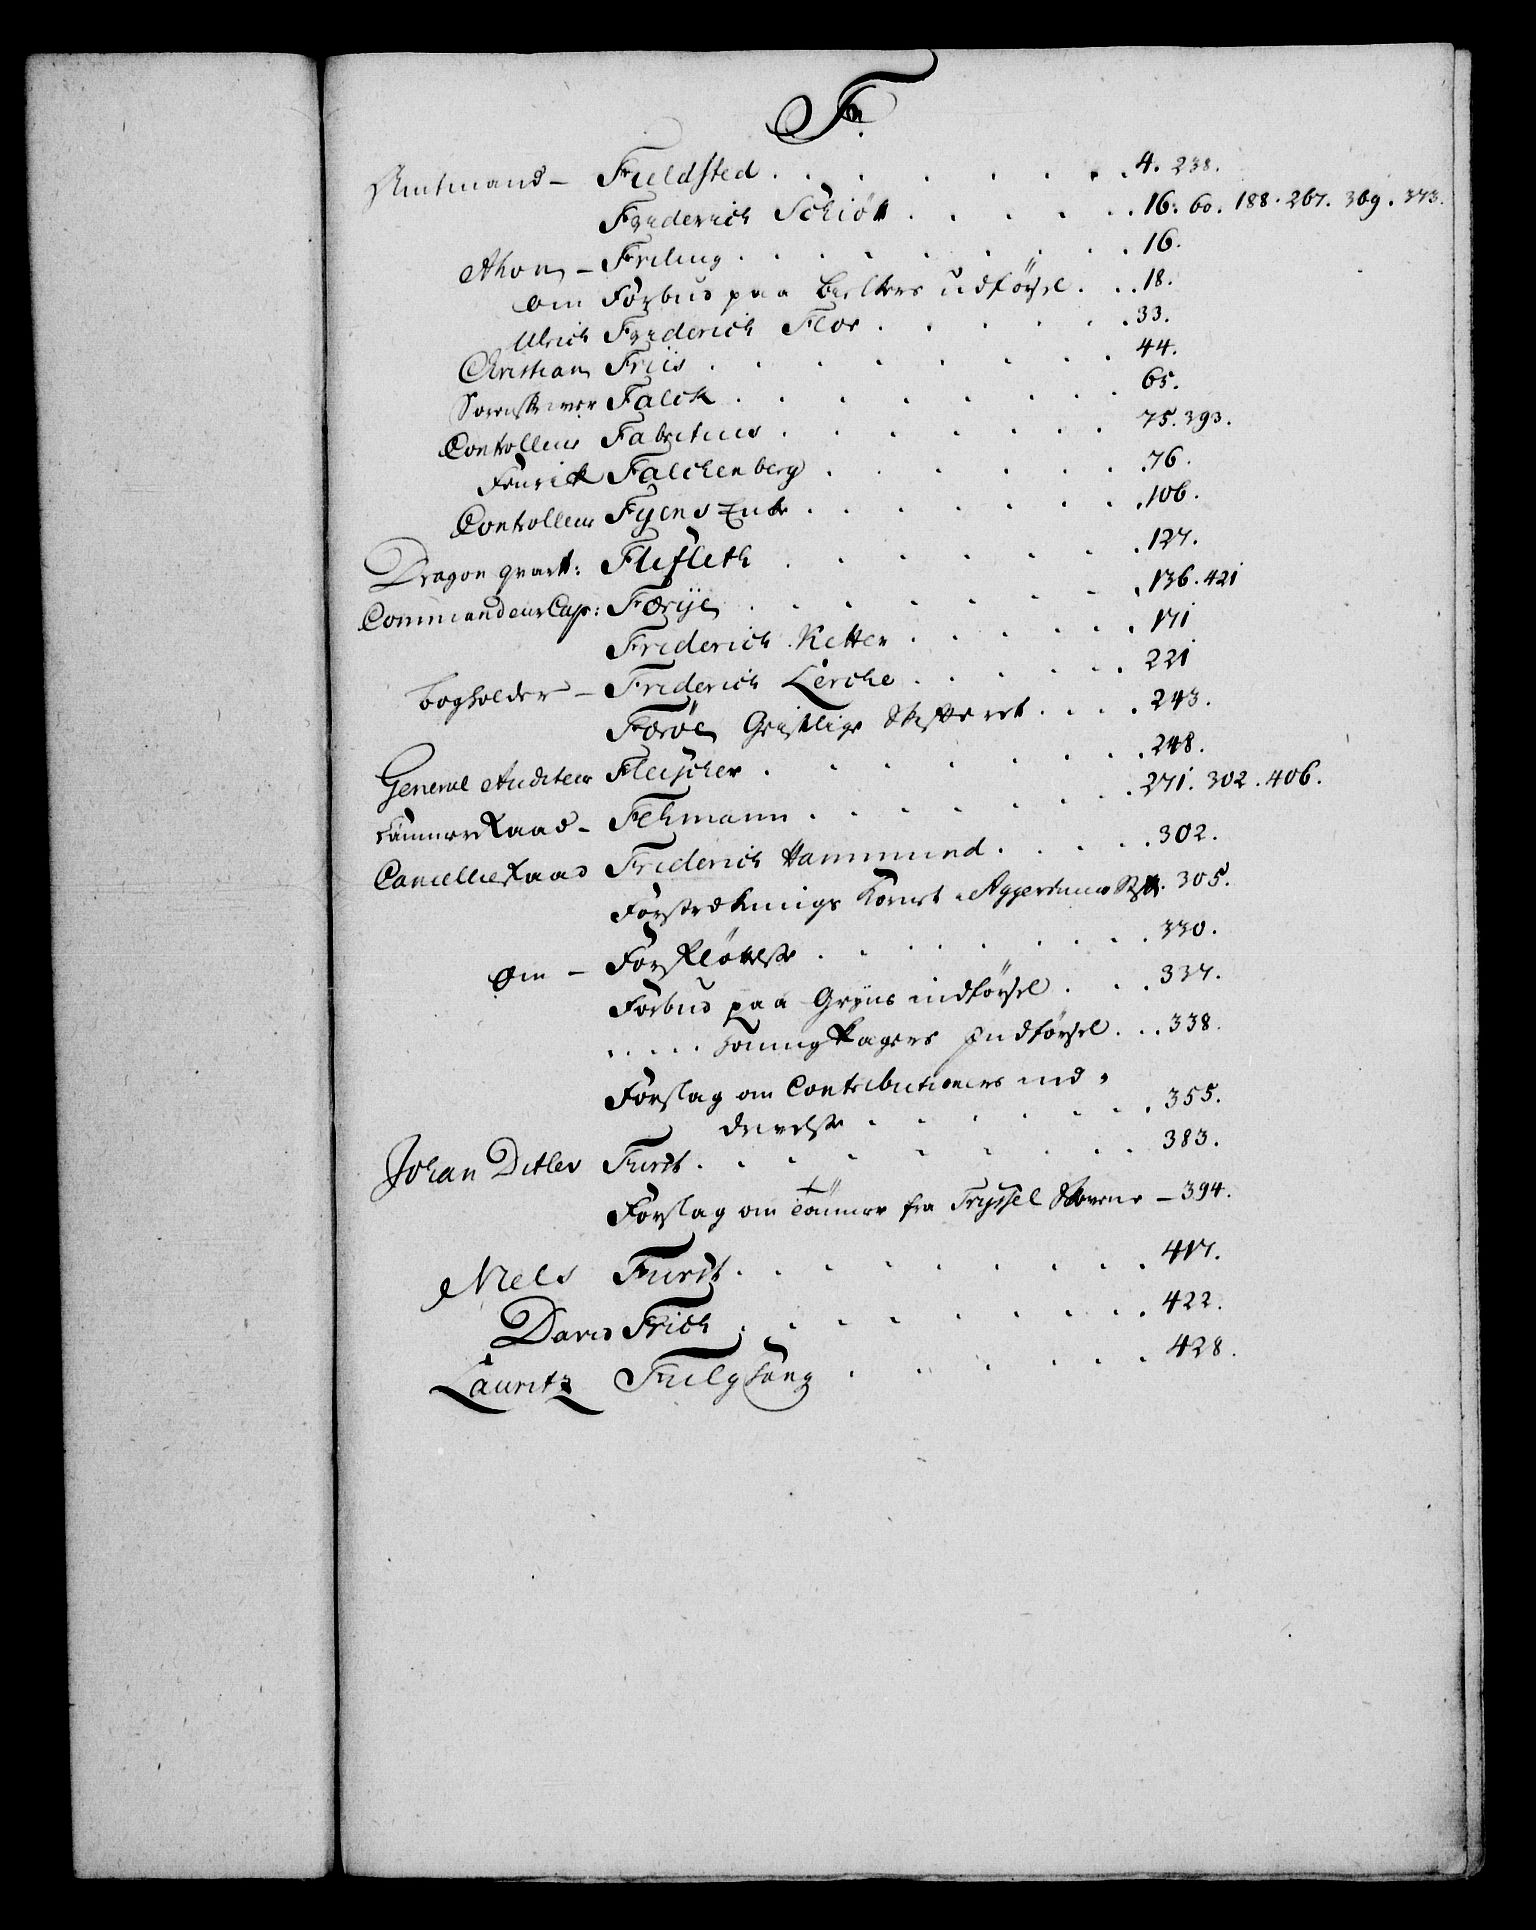 F.
Amtmand - Fieldsted . . . . . . . 4. 238.
Friderich Schiøtt . . . . . 16. 60. 188. 267. 369. 373.
Ahon - Friling . . . . . . . 16.
om Forbud paa Bielkers udförsel . . . 18.
Ulrich Friderich Flor . . . . . . 33.
Christian Friis . . . . . . . . 44.
Sorenskriver Falck . . . . . . . . 65.
Controlleur Fabritius . . . . . . . 75. 393.
Fenrik Falchenberg . . . . . . . 76.
Controlleur Fyens Enke . . . . . . . 106.
Dragon qvart: Flifleth . . . . . . . 127.
Commandeur Cap: Færÿe . . . . . . . . 136. 421
Friderich Retter . . . . . . 171
Bogholder - Friderich Lerche . . . . . 221
Færöe Geistlige Skifteret . . . . 243.
General Auditeur Fleischer . . . . . . . . 248.
Kammer Raad - Fehmann . . . . . . . 271. 302. 406.
Cancellie Raad Friderich Hammund . . . . . 302.
Forstræknings Kornet i Aggershuus Stift. 305.
Om - Forskiötelse . . . . . . . . 330.
Forbud paa Gryns indförsel . . . 337.
. . . . . Honning Kagers Indförsel . . . 338.
Forslag om Contributioners ind-
drivelse . . . . . . 355.
Johan Ditlev Furst . . . . . . . . . . 383.
Forslag om Tömmer fra Tryssel Skovene - 394.
Niels Furst . . . . . . . . . 417.
David Frich . . . . . . . . . 422.
Lauritz Fuglsang . . . . . . 428.